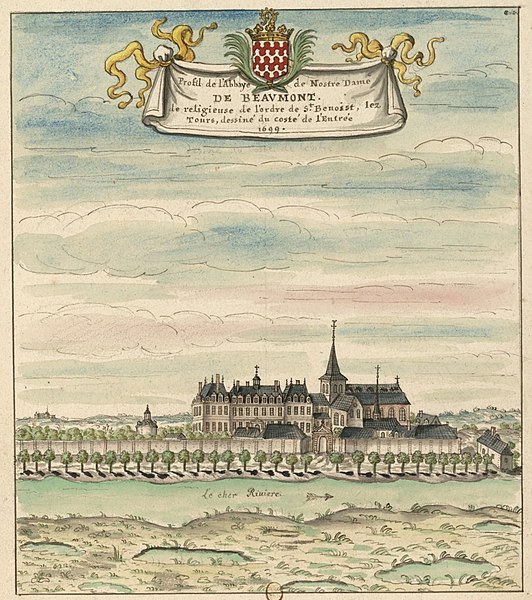 Profil de l'Abbaye de Nostre Dame
DE BEAVMONT.
de religieuse de l'ordre de St. Benoist, lez
Tours, dessiné du costé de l'Entrée
1699.
Le cher Riviere.